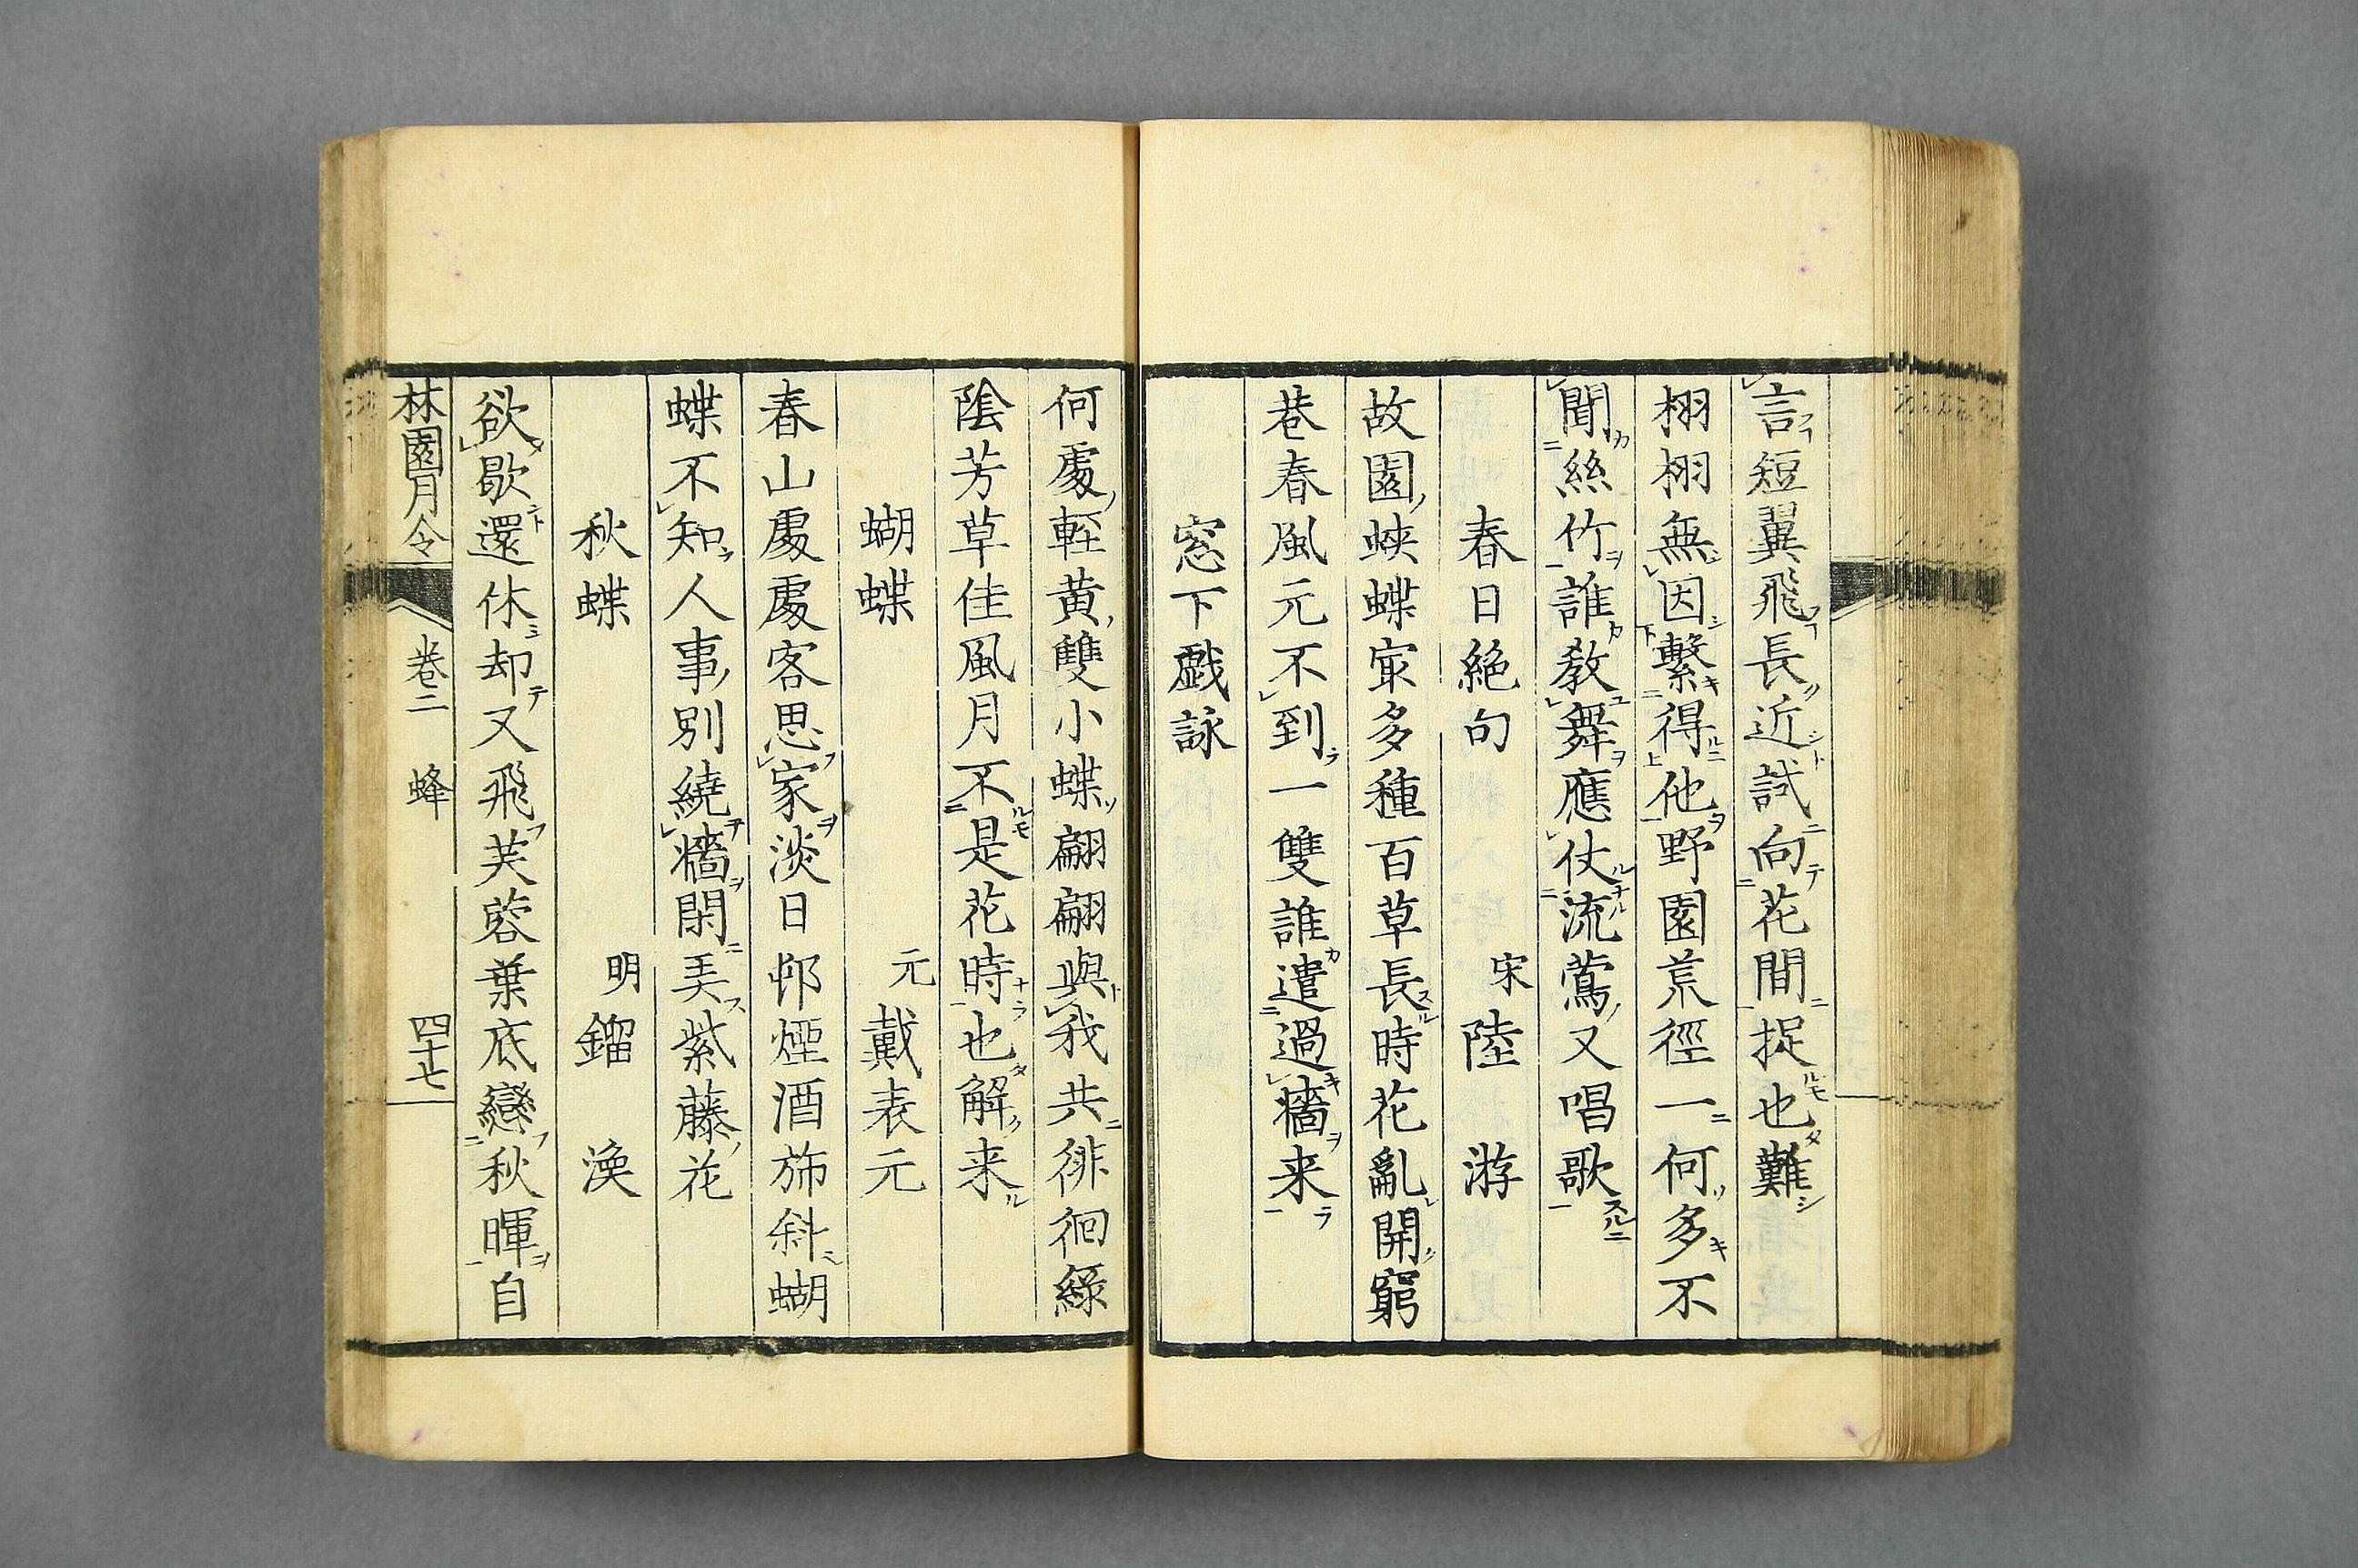 言短翼飛長近試向花間捉也難
栩栩無因繫得他野園荒徑一何多不
聞絲竹誰教舞應仗流鶯又唱歌
春日絶句 宋 陸 游
故園蛺蝶冣多種百草長時花亂開窮
巷春風元不到一雙誰遣過牆来
窓下戯詠
何處輕黃雙小蝶翩翩與我共徘徊綠
陰芳草佳風月不是花時也解来
蝴蝶 元 戴表元
春山處處客思家淡日邨煙酒斾斜蝴
蝶不知人事別繞牆閑美紫藤花
秋蝶 明 鎦 渙
欲歇還休却又飛芙蓉葉底戀秋暉自
林園月令 卷二 蜂 四十七